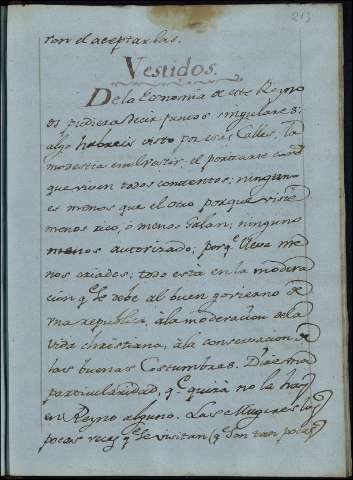 213
ron el aceptarlas.
Vestidos.
De la Economia de este Reyno
os pudiera decir puntos singulares:
algo habreis visto por esas Calles, la
modestia en el vestir: el portarse con
que viven todos contentos; ninguno
es menos que el otro porque viste
menos rico, o menos Galan; ninguno
menos autorizado, porq.e lleve me
nos criados; todo està en la modera
cion q.e se debe al buen govierno de
una republica, à la moderacion de la
vida christiana, à la conservacion de
las buenas Costumbres. Dire una
particularidad, q.e quizà no la hay
en Reyno alguno. Las Mugeres las
pocas veces q.e se visitan (q.e son tan pocas